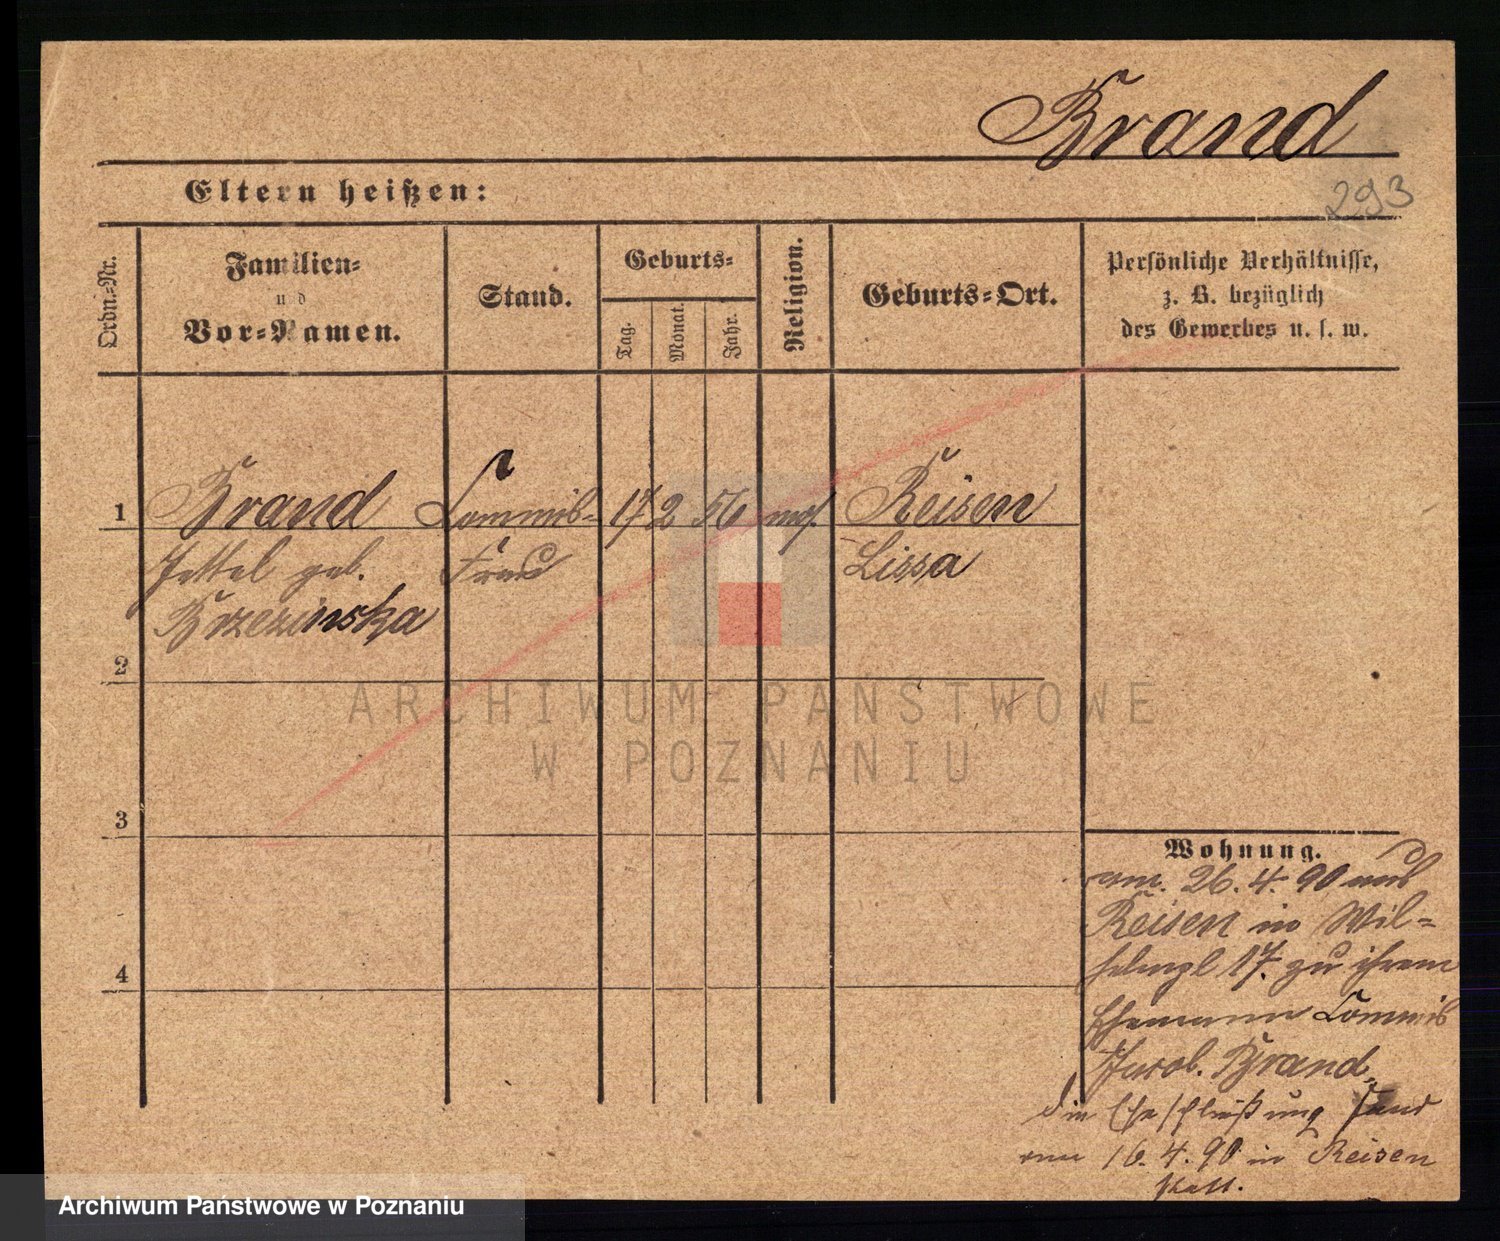 Brand
293
Eltern heißen:
Ordn.-Nr.
Familien-
und
Vor-Namen.
Stand.
Geburts-
Tag.
Monat.
Jahr.
Religion.
Geburts-Ort.
Persönliche Verhältnisse,
z. B. bezüglich
des Gewerbes u. s. w.
1 Brand Commis- 17 2 56 mos. Reisen
Jettel geb. Frau Lissa
Brzezinska
2
3
4
Wohnung.
am 26.4.90 aus
Reisen in Wil-
helmpl 17. zu ihrem
Ehemann Commis
Jacob Brand,
die Eheschließung fand
am 16.4.90 in Reisen
statt.
ARCHIWUM PAŃSTWOWE
W POZNANIU
Archiwum Państwowe w Poznaniu